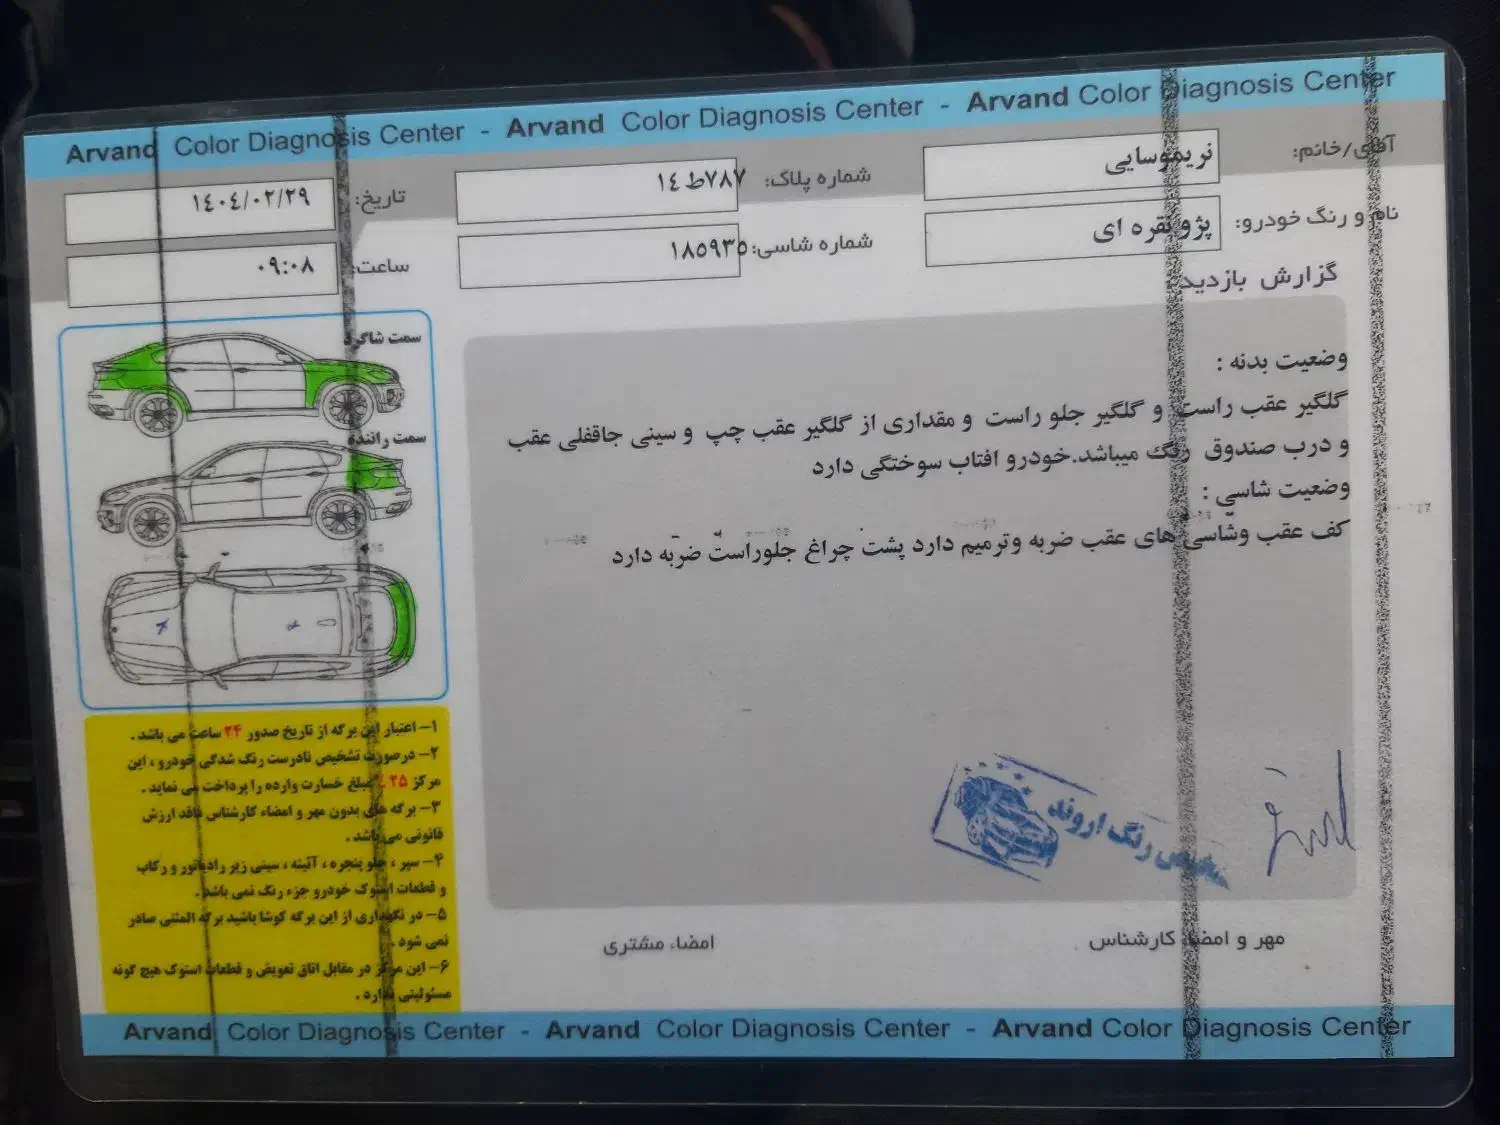 Arvand Color Diagnosis Center - Arvand Color Diagnosis Center - Arvand Color Diagnosis Center
آقای/خانم: نریموسایی
شماره پلاک: ۷۸۷ط۱٤
تاریخ: ۱٤۰٤/۰۲/۲۹
نام و رنگ خودرو: پژو نقره ای
شماره شاسی: ۱۸۵۹۳۵
ساعت: ۰۹:۰۸
گزارش بازدید:
وضعیت بدنه :
گلگیر عقب راست و گلگیر جلو راست و مقداری از گلگیر عقب چپ و سینی جاقفلی عقب
و درب صندوق رنگ میباشد.خودرو افتاب سوختگی دارد
وضعیت شاسی :
کف عقب وشاسی های عقب ضربه وترمیم دارد پشت چراغ جلوراست ضربه دارد
سمت شاگرد
سمت راننده
۱- اعتبار این برگه از تاریخ صدور ۲۴ ساعت می باشد .
۲- درصورت تشخیص نادرست رنگ شدگی خودرو ، این
مرکز ۲۵٪ مبلغ خسارت وارده را پرداخت می نماید .
۳- برگه های بدون مهر و امضاء کارشناس فاقد ارزش
قانونی می باشد .
۴- سپر ، جلو پنجره ، آئینه ، سینی زیر رادیاتور و رکاب
و قطعات استوک خودرو جزء رنگ نمی باشد .
۵- در نگهداری از این برگه کوشا باشید برگه المثنی صادر
نمی شود .
۶- این مرکز در مقابل اتاق تعویض و قطعات استوک هیچ گونه
مسئولیتی ندارد .
تشخیص رنگ اروند
مهر و امضاء کارشناس
امضاء مشتری
Arvand Color Diagnosis Center - Arvand Color Diagnosis Center - Arvand Color Diagnosis Center